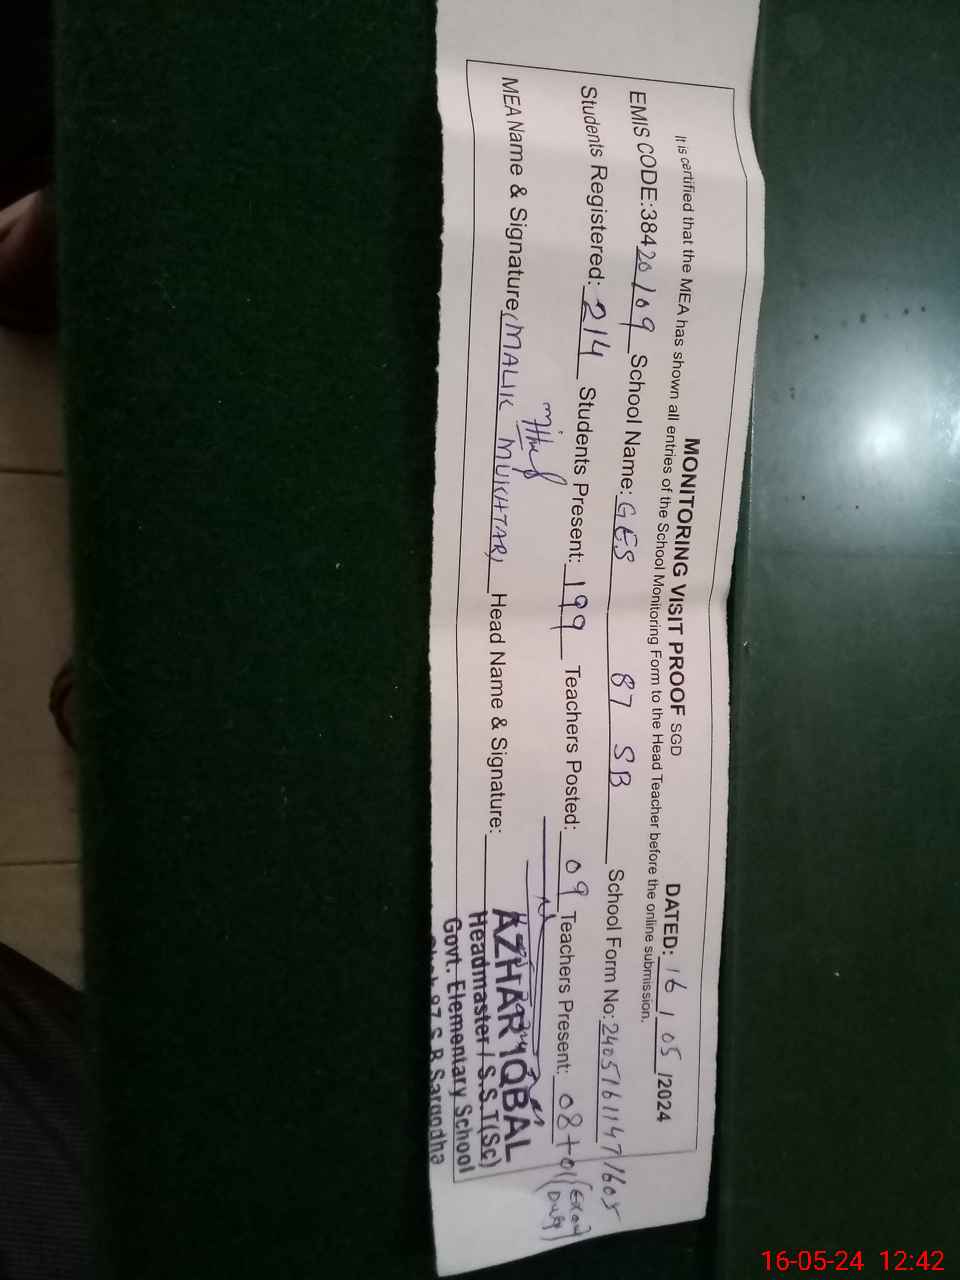 MONITORING VISIT PROOF SGD DATED: 16 / 05 /2024
It is certified that the MEA has shown all entries of the School Monitoring Form to the Head Teacher before the online submission.
EMIS CODE:38420109 School Name: GES 87 SB School Form No: 24051611471605
Students Registered: 214 Students Present: 199 Teachers Posted: 09 Teachers Present: 08+01 (Exam Duty)
MEA Name & Signature (MALIK MUKHTAR) Head Name & Signature:
AZHAR IQBAL
Headmaster / S.S.T(Sc)
Govt. Elementary School
Chak 87 S.B Sargodha
16-05-24 12:42